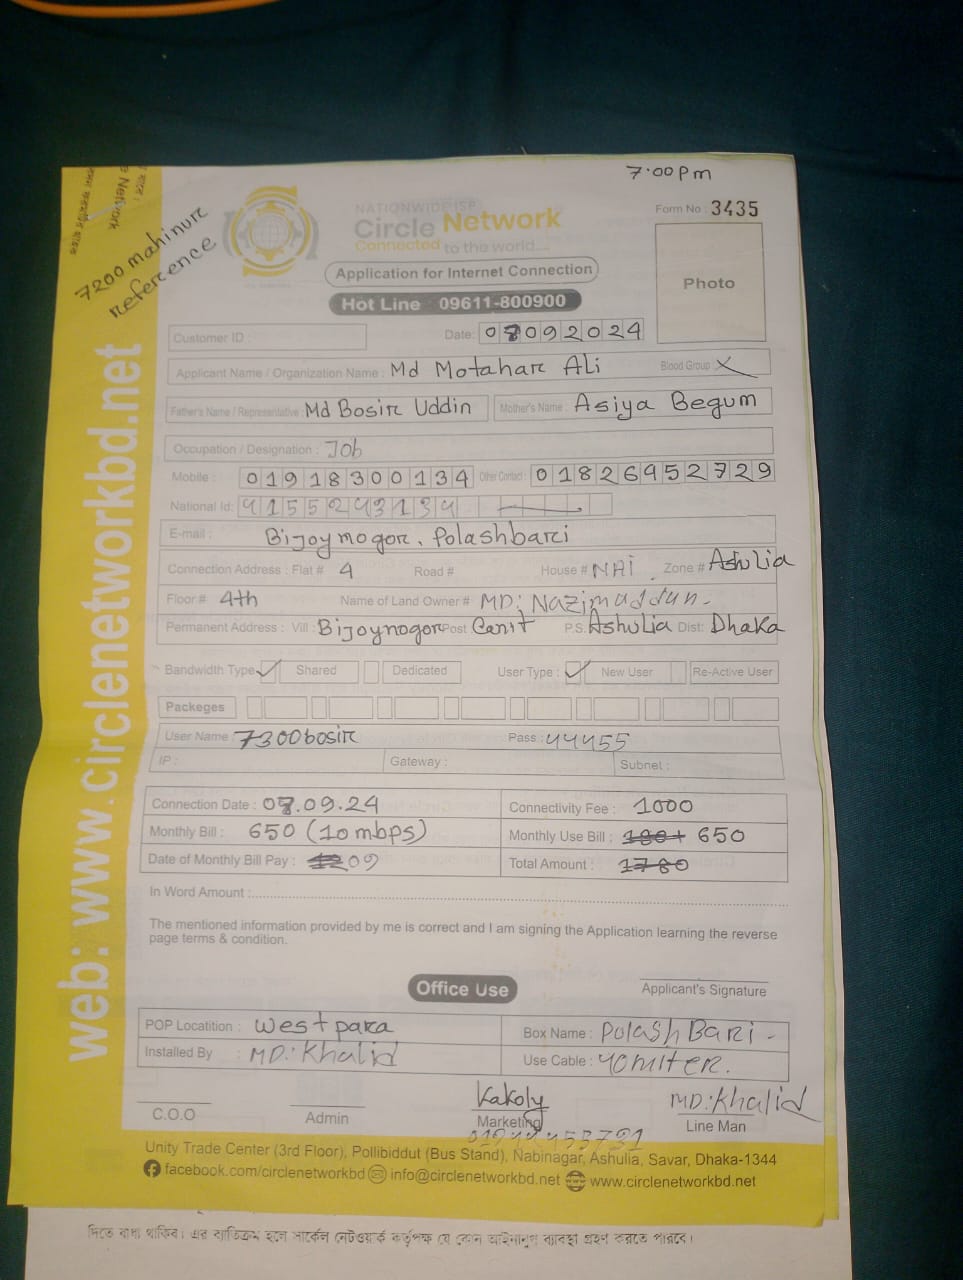 7:00 pm
7200 mahinur
reference
e Network
NATIONWIDE ISP
Circle Network
Connected to the world....
Form No : 3435
Application for Internet Connection
Photo
Hot Line 09611-800900
Customer ID :
Date: 07092024
Applicant Name / Organization Name : Md Motahar Ali
Blood Group :
Father's Name / Representative : Md Bosir Uddin Mother's Name : Asiya Begum
Occupation / Designation : Job
Mobile : 01918300134 Other Contact : 01826952729
National Id: 4155243134
E-mail : Bijoynogor, Polashbari
Connection Address : Flat # 4 Road # House # NAI Zone # Ashulia
Floor # 4th Name of Land Owner # MD: Nazimuddun
Permanent Address : Vill : Bijoynogor Post Cenit P.S. Ashulia Dist: Dhaka
Bandwidth Type Shared Dedicated User Type : New User Re-Active User
Packeges
User Name : 7300bosir Pass : 44455
IP : Gateway : Subnet :
Connection Date : 07.09.24 Connectivity Fee : 1000
Monthly Bill : 650 (10 mbps) Monthly Use Bill : 650
Date of Monthly Bill Pay : 09 Total Amount : 1780
In Word Amount :
The mentioned information provided by me is correct and I am signing the Application learning the reverse
page terms & condition.
Office Use
Applicant's Signature
POP Locatition : West para Box Name : Polash Bari -
Installed By : MD: Khalid Use Cable : 40miter.
Kakoly MD: Khalid
C.O.O Admin Marketing Line Man
Unity Trade Center (3rd Floor), Pollibiddut (Bus Stand), Nabinagar, Ashulia, Savar, Dhaka-1344
facebook.com/circlenetworkbd info@circlenetworkbd.net www.circlenetworkbd.net
web: www.circlenetworkbd.net
দিতে বাধ্য থাকিব। এর ব্যতিক্রম হলে সার্কেল নেটওয়ার্ক কর্তৃপক্ষ যে কোন আইনানুগ ব্যবস্থা গ্রহণ করতে পারবে।